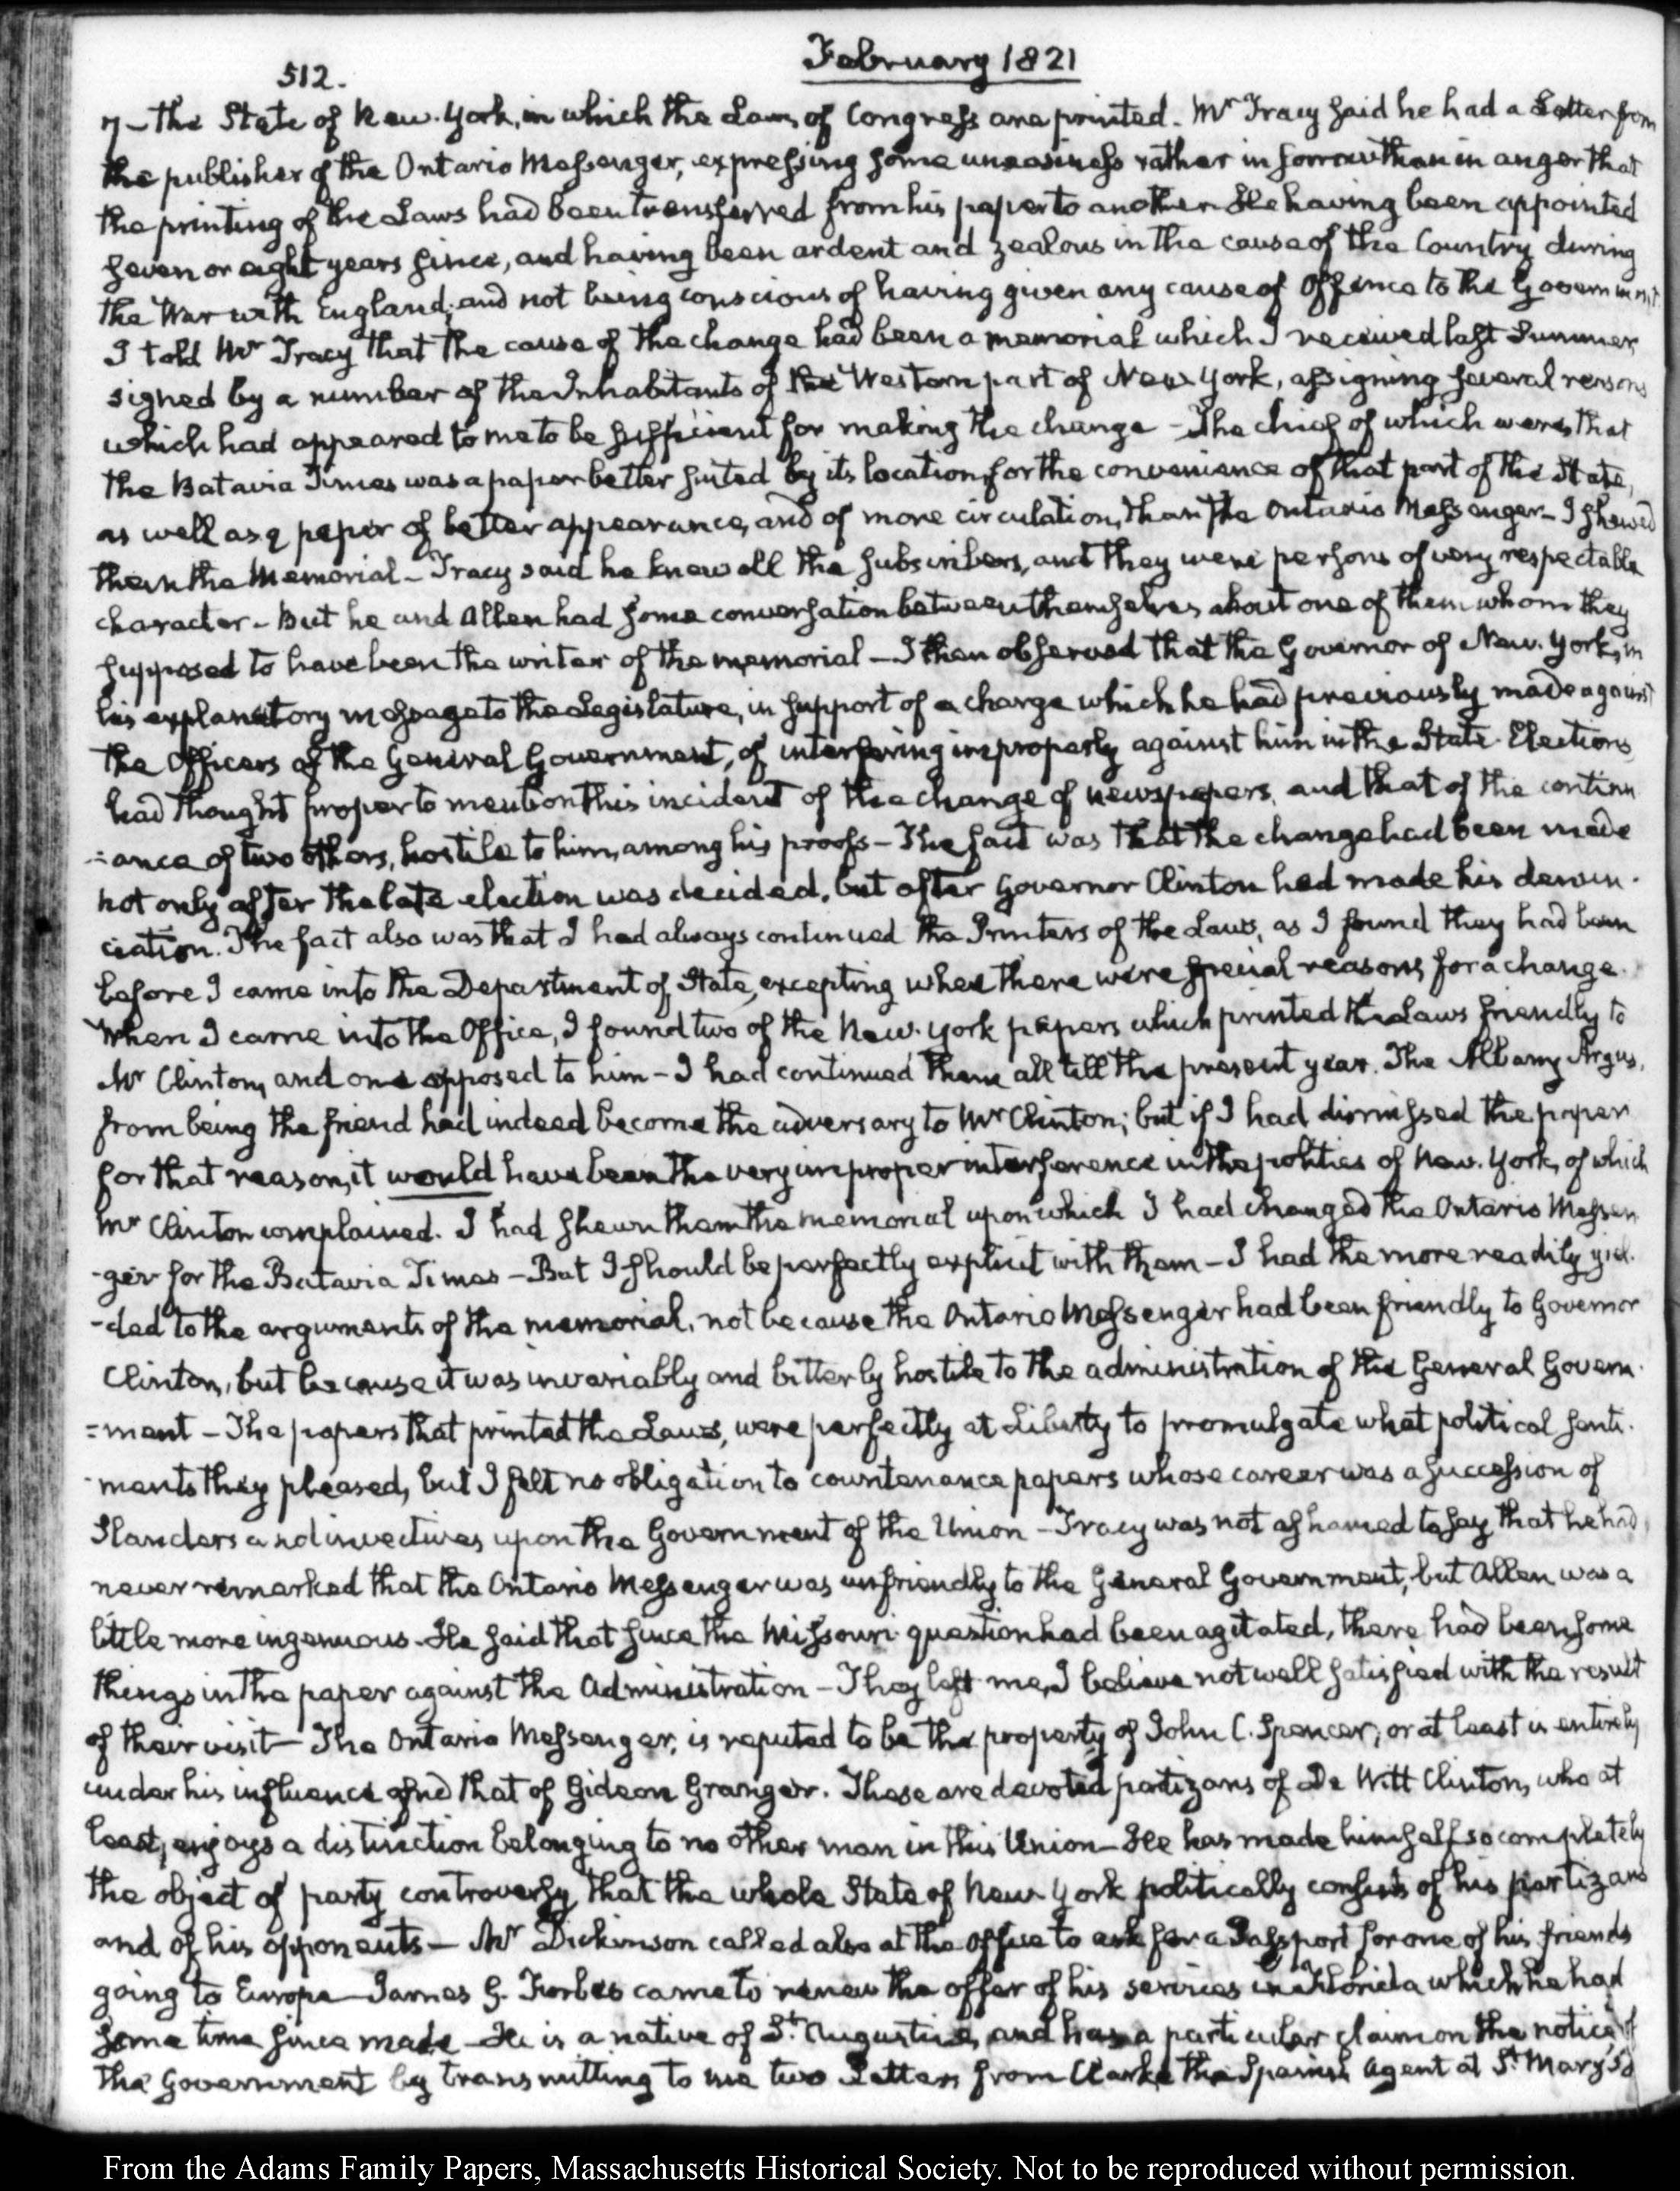 512.
February 1821
7 - the State of New-York, in which the Laws of Congress are printed. Mr Tracy said he had a Letter from
the publisher of the Ontario Messenger, expressing some uneasiness rather in sorrow than in anger that
the printing of the Laws had been transferred from his paper to another. He having been appointed
seven or eight years since, and having been ardent and zealous in the cause of the Country during
the War with England; and not being conscious of having given any cause of Offence to the Government.
I told Mr Tracy that the cause of the change had been a memorial which I received last Summer,
signed by a number of the Inhabitants of the Western part of New-York, assigning several reasons
which had appeared to me to be sufficient for making the change - The chief of which were, that
the Batavia Times was a paper better suited by its location, for the convenience of that part of the State,
as well as a paper of better appearance, and of more circulation, than the Ontario Messenger - I shewed
them the Memorial - Tracy said he knew all the subscribers, and they were persons of very respectable
character - But he and Allen had some conversation between themselves about one of them whom they
supposed to have been the writer of the memorial - I then observed that the Governor of New-York, in
his explanatory message to the Legislature, in support of a charge which he had previously made against
the Officers of the General Government, of interfering improperly against him in the State Elections,
had thought proper to mention this incident of the change of newspapers, and that of the continu
=ance of two others, hostile to him, among his proofs - The fact was that the change had been made
not only after the late election was decided, but after Governor Clinton had made his denun-
ciation. The fact also was that I had always continued the Printers of the Laws, as I found they had been
before I came into the Department of State, excepting when there were special reasons for a change.
When I came into the Office, I found two of the New-York papers which printed the Laws friendly to
Mr Clinton, and one opposed to him - I had continued them all till the present year. The Albany Argus,
from being the friend had indeed become the adversary to Mr Clinton; but if I had dismissed the paper
for that reason, it would have been the very improper interference in the politics of New-York, of which
Mr Clinton complained. I had shewn them the memorial upon which I had changed the Ontario Messen
-ger for the Batavia Times - But I should be perfectly explicit with them - I had the more readily yiel-
-ded to the arguments of the memorial, not because the Ontario Messenger had been friendly to Governor
Clinton, but because it was invariably and bitterly hostile to the administration of the General Govern-
=ment - The papers that printed the Laws, were perfectly at Liberty to promulgate what political senti-
-ments they pleased, but I felt no obligation to countenance papers whose career was a succession of
Slanders and invectives upon the Government of the Union - Tracy was not ashamed to say that he had
never remarked that the Ontario Messenger was unfriendly to the General Government, but Allen was a
little more ingenuous - He said that since the Missouri question had been agitated, there had been some
things in the paper against the Administration - They left me, I believe not well satisfied with the result
of their visit - The Ontario Messenger, is reputed to be the property of John C. Spencer; or at least is entirely
under his influence and that of Gideon Granger. These are devoted partizans of De Witt Clinton, who at
least, enjoys a distinction belonging to no other man in this Union - He has made himself so completely
the object of party controversy, that the whole State of New-York politically consists of his partizans
and of his opponents - Mr Dickinson called also at the Office to ask for a Passport for one of his friends
going to Europe - James G. Forbes came to renew the offer of his services in Florida which he had
some time since made - He is a native of St. Augustine, and has a particular claim on the notice of
the Government by transmitting to me two Letters from Clarke the Spanish Agent at St. Mary's
From the Adams Family Papers, Massachusetts Historical Society. Not to be reproduced without permission.